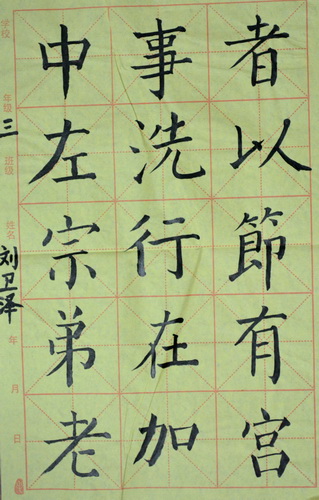 者以節有宫
事洗行在加
中左宗弟老
学校 年级 班级 姓名 年 月 日
三 刘卫泽